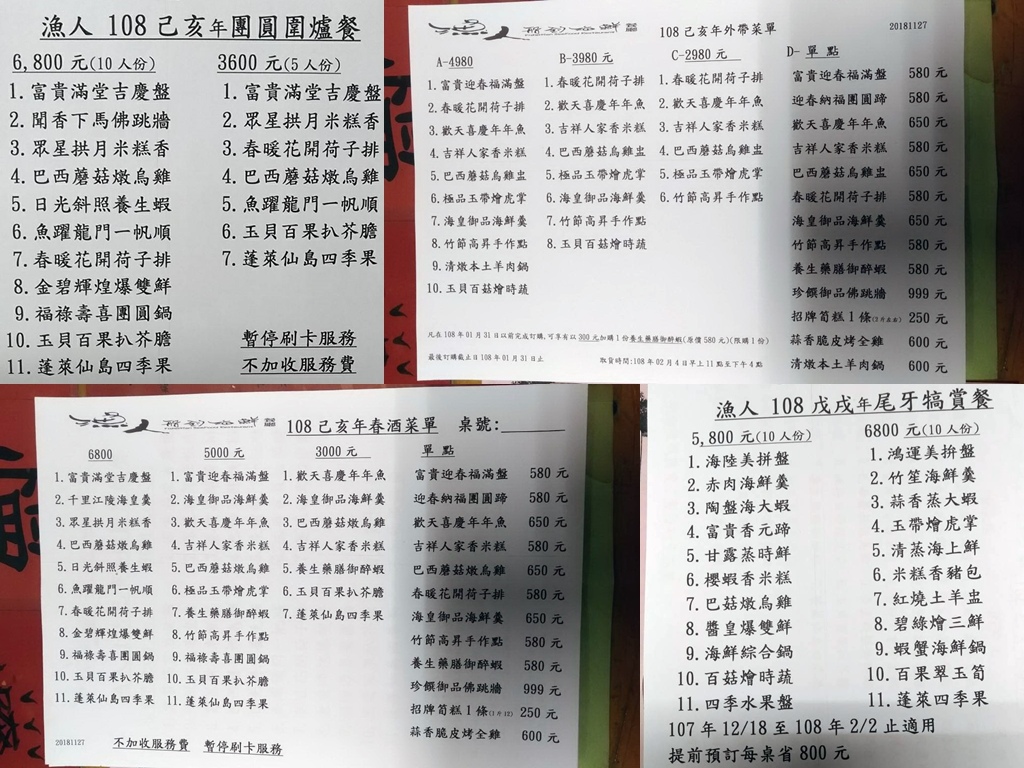 漁人 108 己亥年團圓圍爐餐
6,800 元(10 人份)
1. 富貴滿堂吉慶盤
2. 聞香下馬佛跳牆
3. 眾星拱月米糕香
4. 巴西蘑菇燉烏雞
5. 日光斜照養生蝦
6. 魚躍龍門一帆順
7. 春暖花開荷子排
8. 金碧輝煌爆雙鮮
9. 福祿壽喜團圓鍋
10. 玉貝百果扒芥膽
11. 蓬萊仙島四季果
3600 元(5 人份)
1. 富貴滿堂吉慶盤
2. 眾星拱月米糕香
3. 春暖花開荷子排
4. 巴西蘑菇燉烏雞
5. 魚躍龍門一帆順
6. 玉貝百果扒芥膽
7. 蓬萊仙島四季果
暫停刷卡服務
不加收服務費
108 己亥年外帶菜單
20181127
A-4980
1. 富貴迎春福滿盤
2. 春暖花開荷子排
3. 歡天喜慶年年魚
4. 吉祥人家香米糕
5. 巴西蘑菇烏雞盅
6. 極品玉帶燴虎掌
7. 海皇御品海鮮羹
8. 竹節高昇手作點
9. 清燉本土羊肉鍋
10. 玉貝百菇燴時蔬
B-3980 元
1. 春暖花開荷子排
2. 歡天喜慶年年魚
3. 吉祥人家香米糕
4. 巴西蘑菇烏雞盅
5. 極品玉帶燴虎掌
6. 海皇御品海鮮羹
7. 竹節高昇手作點
8. 玉貝百菇燴時蔬
C-2980 元
1. 春暖花開荷子排
2. 歡天喜慶年年魚
3. 吉祥人家香米糕
4. 巴西蘑菇烏雞盅
5. 極品玉帶燴虎掌
6. 竹節高昇手作點
D- 單 點
富貴迎春福滿盤 580 元
迎春納福團圓蹄 580 元
歡天喜慶年年魚 650 元
吉祥人家香米糕 580 元
巴西蘑菇烏雞盅 650 元
春暖花開荷子排 580 元
海皇御品海鮮羹 650 元
竹節高昇手作點 580 元
養生藥膳御醉蝦 580 元
珍饌御品佛跳牆 999 元
招牌筍糕 1 條(3 斤左右) 250 元
蒜香脆皮烤全雞 600 元
清燉本土羊肉鍋 600 元
凡在 108 年 01 月 31 日以前完成訂購,可享有以 300 元加購 1 份養生藥膳御醉蝦(原價 580 元)(限購 1 份)
最後訂購截止日 108 年 01 月 31 日止
取貨時間:108 年 02 月 4 日早上 11 點至下午 4 點
漁人
108 己亥年春酒菜單 桌號:
6800
1. 富貴滿堂吉慶盤
2. 千里江陵海皇羹
3. 眾星拱月米糕香
4. 巴西蘑菇燉烏雞
5. 日光斜照養生蝦
6. 魚躍龍門一帆順
7. 春暖花開荷子排
8. 金碧輝煌爆雙鮮
9. 福祿壽喜團圓鍋
10. 玉貝百果扒芥膽
11. 蓬萊仙島四季果
5000 元
1. 富貴迎春福滿盤
2. 海皇御品海鮮羹
3. 歡天喜慶年年魚
4. 吉祥人家香米糕
5. 巴西蘑菇燉烏雞
6. 極品玉帶燴虎掌
7. 養生藥膳御醉蝦
8. 竹節高昇手作點
9. 福祿壽喜團圓鍋
10. 玉貝百果扒芥膽
11. 蓬萊仙島四季果
3000 元
1. 歡天喜慶年年魚
2. 海皇御品海鮮羹
3. 巴西蘑菇燉烏雞
4. 吉祥人家香米糕
5. 養生藥膳御醉蝦
6. 玉貝百果扒芥膽
7. 蓬萊仙島四季果
單 點
富貴迎春福滿盤 580 元
迎春納福團圓蹄 580 元
歡天喜慶年年魚 650 元
吉祥人家香米糕 580 元
巴西蘑菇燉烏雞 650 元
春暖花開荷子排 580 元
海皇御品海鮮羹 650 元
竹節高昇手作點 580 元
養生藥膳御醉蝦 580 元
珍饌御品佛跳牆 999 元
招牌筍糕 1 條 250 元
蒜香脆皮烤全雞 600 元
20181127
不加收服務費 暫停刷卡服務
漁人 108 戊戌年尾牙犒賞餐
5,800 元(10 人份)
1. 海陸美拼盤
2. 赤肉海鮮羹
3. 陶盤海大蝦
4. 富貴香元蹄
5. 甘露蒸時鮮
6. 櫻蝦香米糕
7. 巴菇燉烏雞
8. 醬皇爆雙鮮
9. 海鮮綜合鍋
10. 百菇燴時蔬
11. 四季水果盤
6800 元(10 人份)
1. 鴻運美拚盤
2. 竹笙海鮮羹
3. 蒜香蒸大蝦
4. 玉帶燴虎掌
5. 清蒸海上鮮
6. 米糕香豬包
7. 紅燒土羊盅
8. 碧綠燴三鮮
9. 蝦蟹海鮮鍋
10. 百果翠玉筍
11. 蓬萊四季果
107 年 12/18 至 108 年 2/2 止適用
提前預訂每桌省 800 元